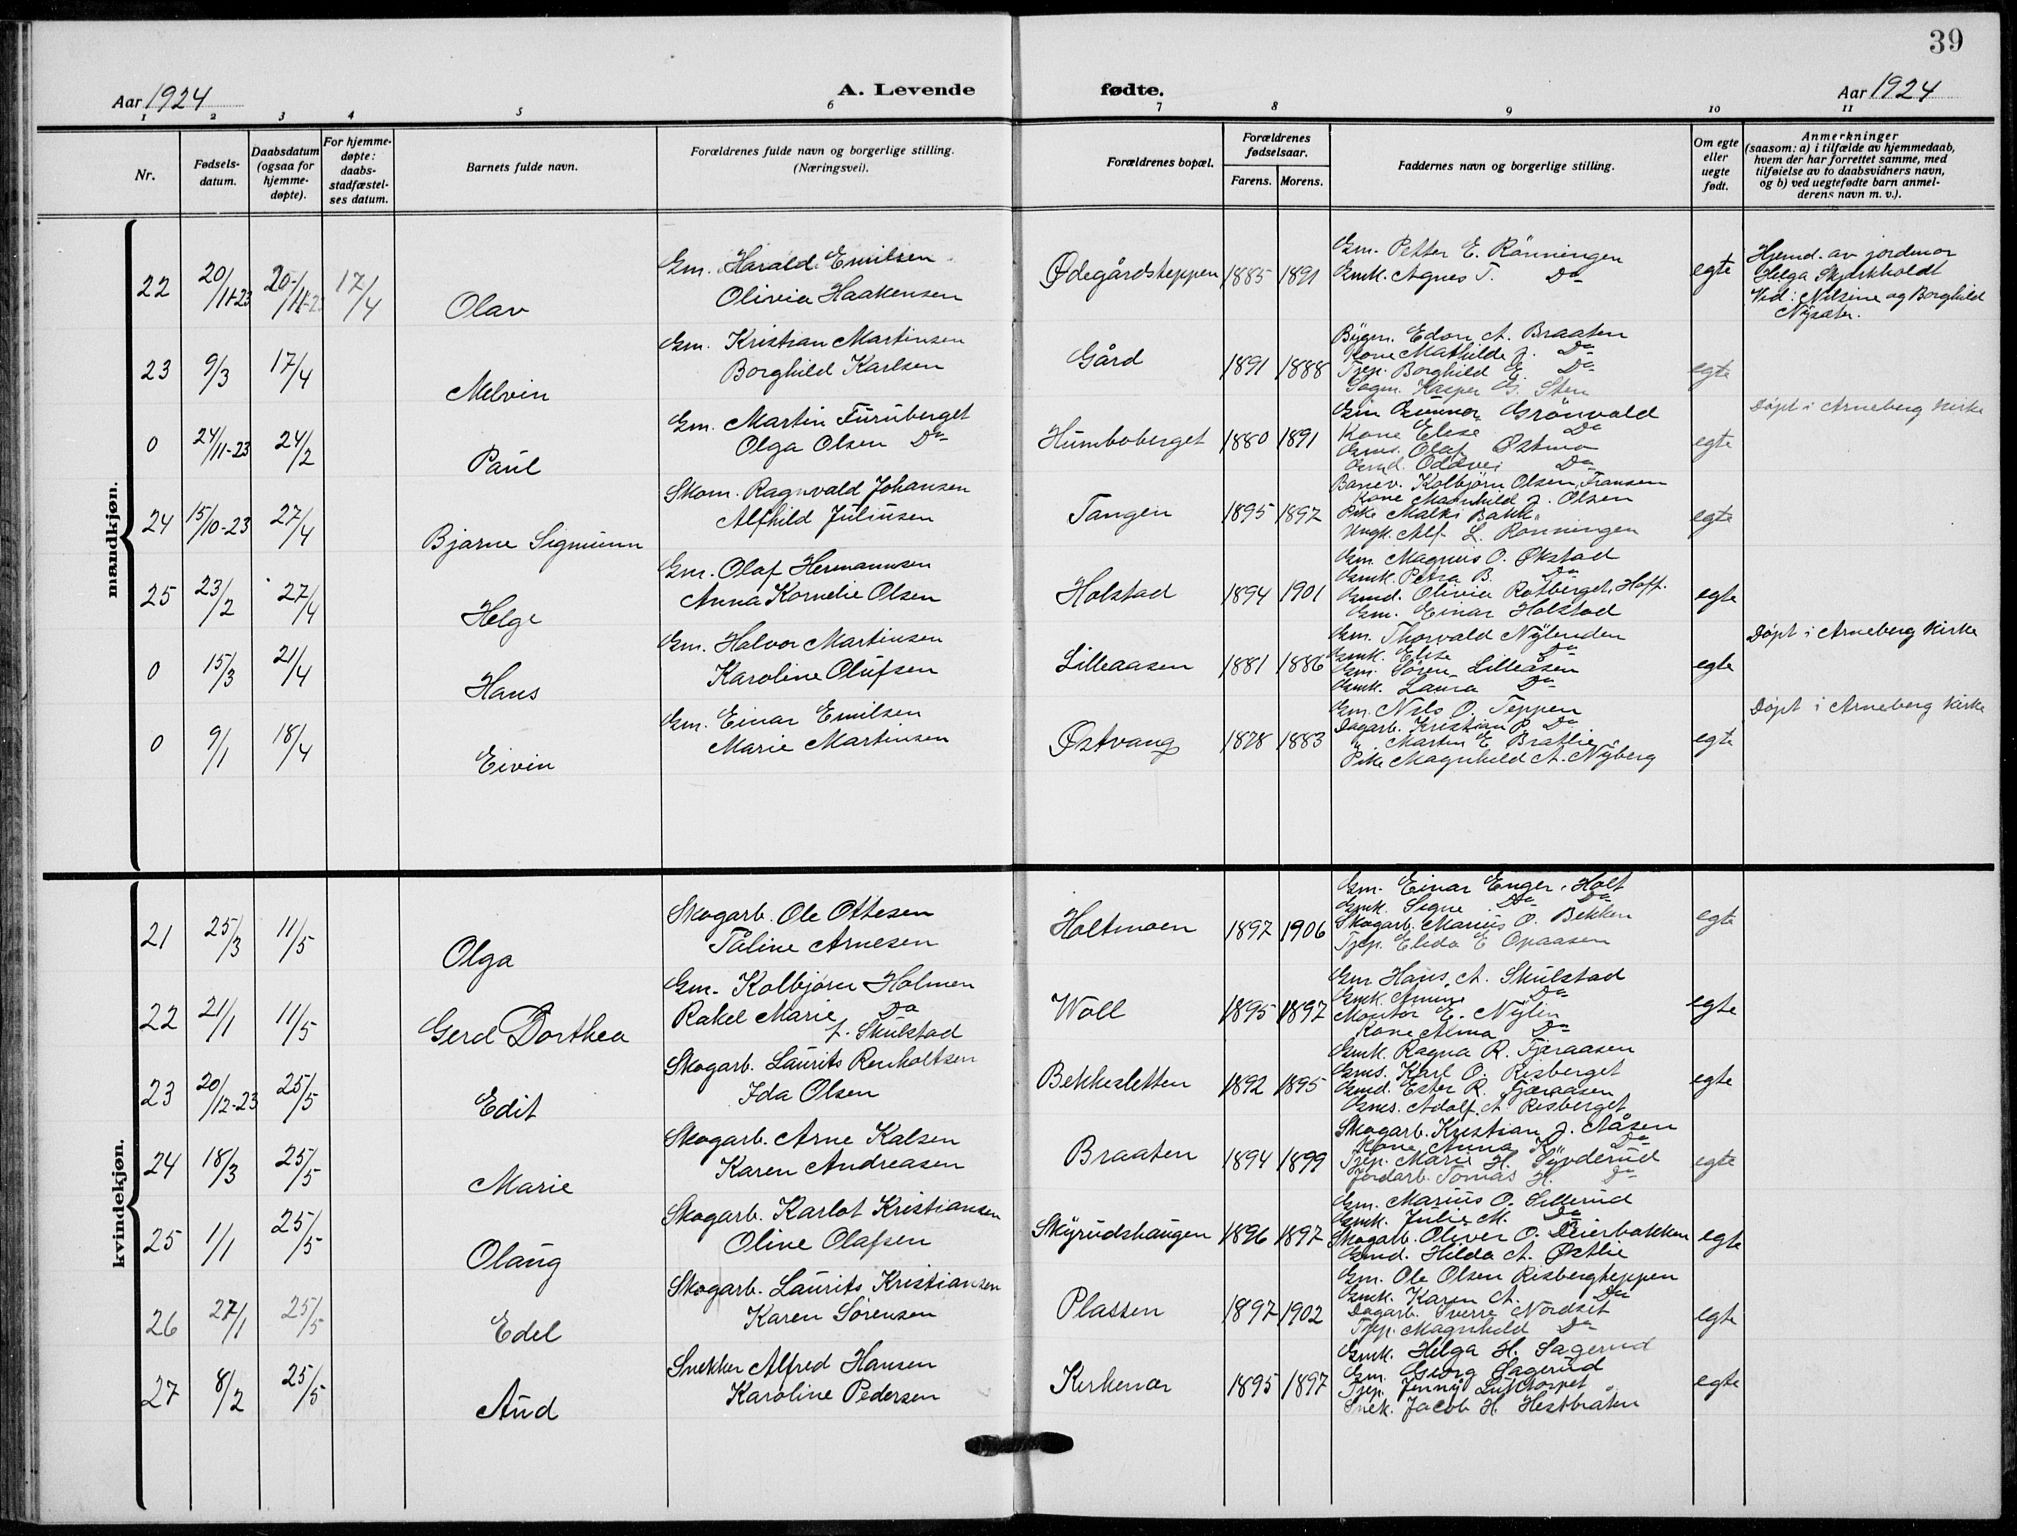 39
Aar 1924
A. Levende fødte.
Aar 1924
1 2 3 4 5 6 7 8 9 10 11
Nr.
Fødsels-
datum.
Daabsdatum
(ogsaa for
hjemme-
døpte).
For hjemme-
døpte:
daabs-
stadfæstel-
ses datum.
Barnets fulde navn.
Forældrenes fulde navn og borgerlige stilling.
(Næringsvei).
Forældrenes bopæl.
Forældrenes
fødselsaar.
Farens. Morens.
Faddernes navn og borgerlige stilling.
Om egte
eller
uegte
født.
Anmerkninger
(saasom: a) i tilfælde av hjemmedaab,
hvem der har forrettet samme, med
tilføielse av to daabsvidners navn,
og b) ved uegtefødte barn anmel-
derens navn m. v.).
mandkjøn.
22 20/11-23 20/11-23 17/4 Olav
Gm. Harald Emilsen
Olivia Haakensen
Ødegårdsteppen 1885 1891
Gm. Petter E. Rönningen
Gmk. Agnes T. Do
egte
Hjemd. av jordmor
Helga Skjerkholdt
Vid: Nilsine og Borghild
Nysæter.
23 9/3 17/4 Melvin
Gm. Kristian Martinsen
Borghild Karlsen
Gård 1891 1888
Bygm. Edon A. Braaten
Kone Mathilde J. Do
Tjep. Borghild E. Do
Gagm. Kasper G. Sten
egte
0 24/11-23 24/2 Paul
Gm. Martin Furuberget
Olga Olsen Do
Humboberget 1880 1891
Gm Gunnar Grönvold
Kone Elise Do
Gms. Olaf Østmo
Gmd. Oddvei Do
egte
Døpt i Arneberg Kirke
24 15/10-23 27/4 Bjarne Sigmunn
Skom. Ragnvald Johansen
Alfhild Juliusen
Tangen 1895 1897
Banev. Kolbjörn Olsen, Fransen
Kone Magnhild J. Olsen
Pike Malki Bakk
Ungk. Alf L. Rönningen
egte
25 23/2 27/4 Helge
Gm. Olaf Hermannsen
Anna Kornelie Olsen
Holstad 1894 1901
Gm. Magnus O. Økstad
Gmk. Petra B. Do
Gmd. Olivia Rotberget, Hoff.
Gm. Einar Holstad
egte
0 15/3 21/4 Hans
Gm. Halvor Martinsen
Karoline Olufsen
Lilleaasen 1881 1886
Gm. Thorvald Nylenden
Gmk. Elise Do
Gm. Sören Lilleåsen
Gmk. Laura Do
egte
Döpt i Arneberg Kirke
0 9/1 18/4 Eivin
Gm. Einar Emilsen
Marie Martinsen
Østvang 1878 1883
Gm. Nils O. Teppen
Dagarb. Kristian P. Do
" Martin E. Bratlie
Pike Magnhild A. Nyberg
egte
Døpt i Arneberg Kirke
kvindekjøn.
21 25/3 11/5 Olga
Skogarb. Ole Ottesen
Tåline Arnesen
Holtmoen 1897 1906
Gm. Einar Enger, Holt
Gmk. Signe Do Do
Skogarb. Marius O. Bekken
Tjep. Elida E Opaasen
egte
22 21/1 11/5 Gerd Dorthea
Gm. Kolbjörn Holmen
Rakel Marie Do
f. Skulstad
Woll 1895 1897
Gm Hans A. Skulstad
Gmk. Do
Montör E. Nylen
Kone Alma Do
egte
23 20/12-23 25/5 Edit
Skogarb. Laurits Renholtsen
Ida Olsen
Bekkesletten 1892 1895
Gmk. Ragna R. Fjæraasen
Gms. Karl O. Risberget
Gmd. Ester R. Fjæraasen
Gms. Adolf A. Risberget
egte
24 18/3 25/5 Marie
Skogarb. Arne Kalsen
Karen Andreasen
Braaten 1894 1899
Skogarb. Kristian J. Aåsen
Kone Anna K. Do
Tjep. Marie H. Synderud
Jordarb. Tomas H. Do
egte
25 1/1 25/5 Olaug
Skogarb. Karlot Kristiansen
Oline Olafsen
Skyrudshaugen 1896 1897
Gm. Marius O. Sillerud
Gmk. Julie M. Do
Skogarb. Oliver O. Deierbakken
Gmd. Hilda A. Østlie
egte
26 27/1 25/5 Edel
Skogarb. Laurits Kristiansen
Karen Sörensen
Plassen 1897 1902
Gm. Ole Olsen Risbergteppen
Gmk. Karen A. Do
Dagarb. Sverre Nordset
Tjep. Magnhild Do
egte
27 8/2 25/5 Aud
Snekker Alfred Hansen
Karoline Pedersen
Kerkenær 1895 1897
Gmk. Helga H. Sagerud
Gm. Georg Sagerud
Tjep. Jenny
Snek. Jacob H. Hestbraten
egte